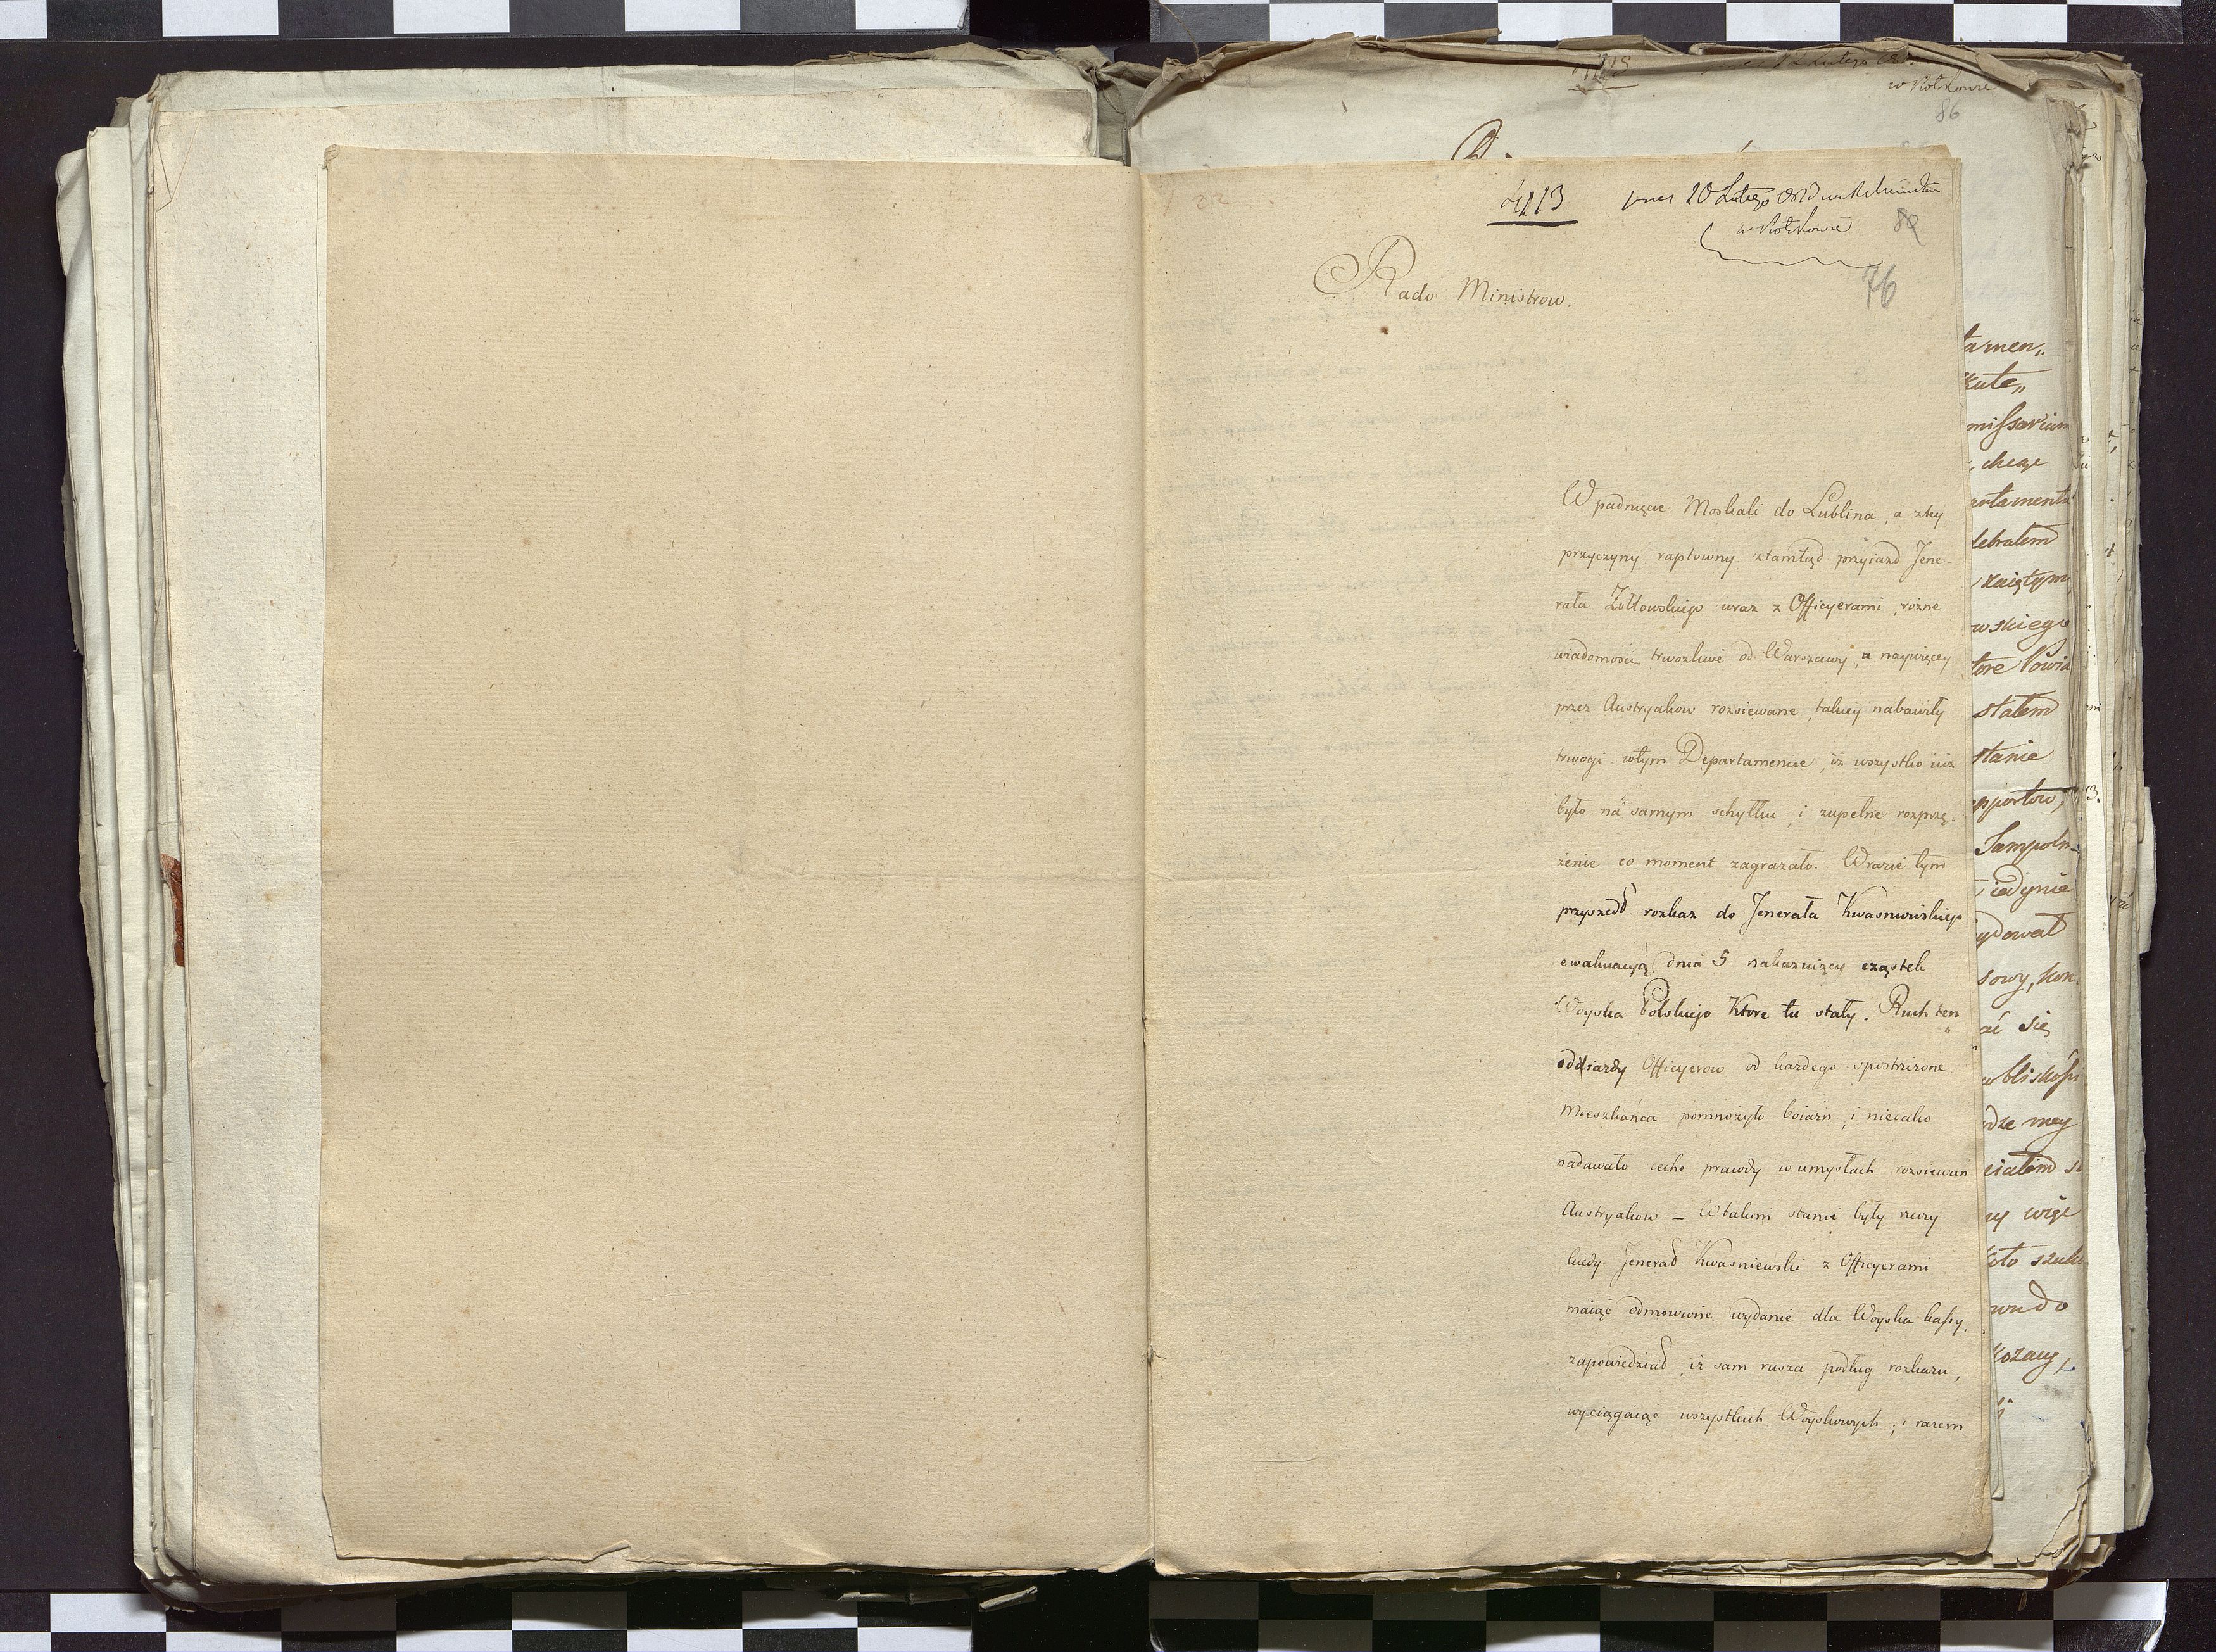 4113
20 Lutego
w Piotrkowie
82
76
Rado Ministrow.
Wpadnięcie Moskali do Lublina, a z tey
przyczyny raptowny ztamtąd przyiazd Jene-
rała Żołtowskiego wraz z Officyerami, rożne
wiadomości trwożliwe od Warszawy, a naywięcey
przez Austryakow rozsiewane, takiey nabawiły
trwogi w tym Departamencie, iż wszystko iuż
było na samym schyłku, i zupełne rozprzę-
żenie co moment zagrażało. W razie tym
przyszedł rozkaz do Jenerała Kwasniewskiego
ewakuacyą dnia 5 nakazuiący cząstek
Woyska Polskiego Ktore tu stały. Ruch ten
oddiazdy Officyerow od każdego spostrzeżone
Mieszkańca pomnożyło boiaźń, i nieiako
nadawało cechę prawdy w umysłach rozsiewan
Austryakow – W takim stanie były rzeczy
kiedy Jenerał Kwasniewski z Officyerami
maiąc odmowione wydanie dla Woyska kassy,
zapowiedział, iż sam rusza podług rozkazu,
wyciągaiąc wszystkich Woyskowych, i razem
86
w Piotrkowie
tamen„
kute„
missarium
chege
artamenta
debrałem
zaiętym
wskiego
tore Powia
stałem
stanie
apportow,
Sampoln-
iedynie
ydował
sowy, kon.
ać się
w bliskości
dze mey
ciałem
ny więc
koło szuk